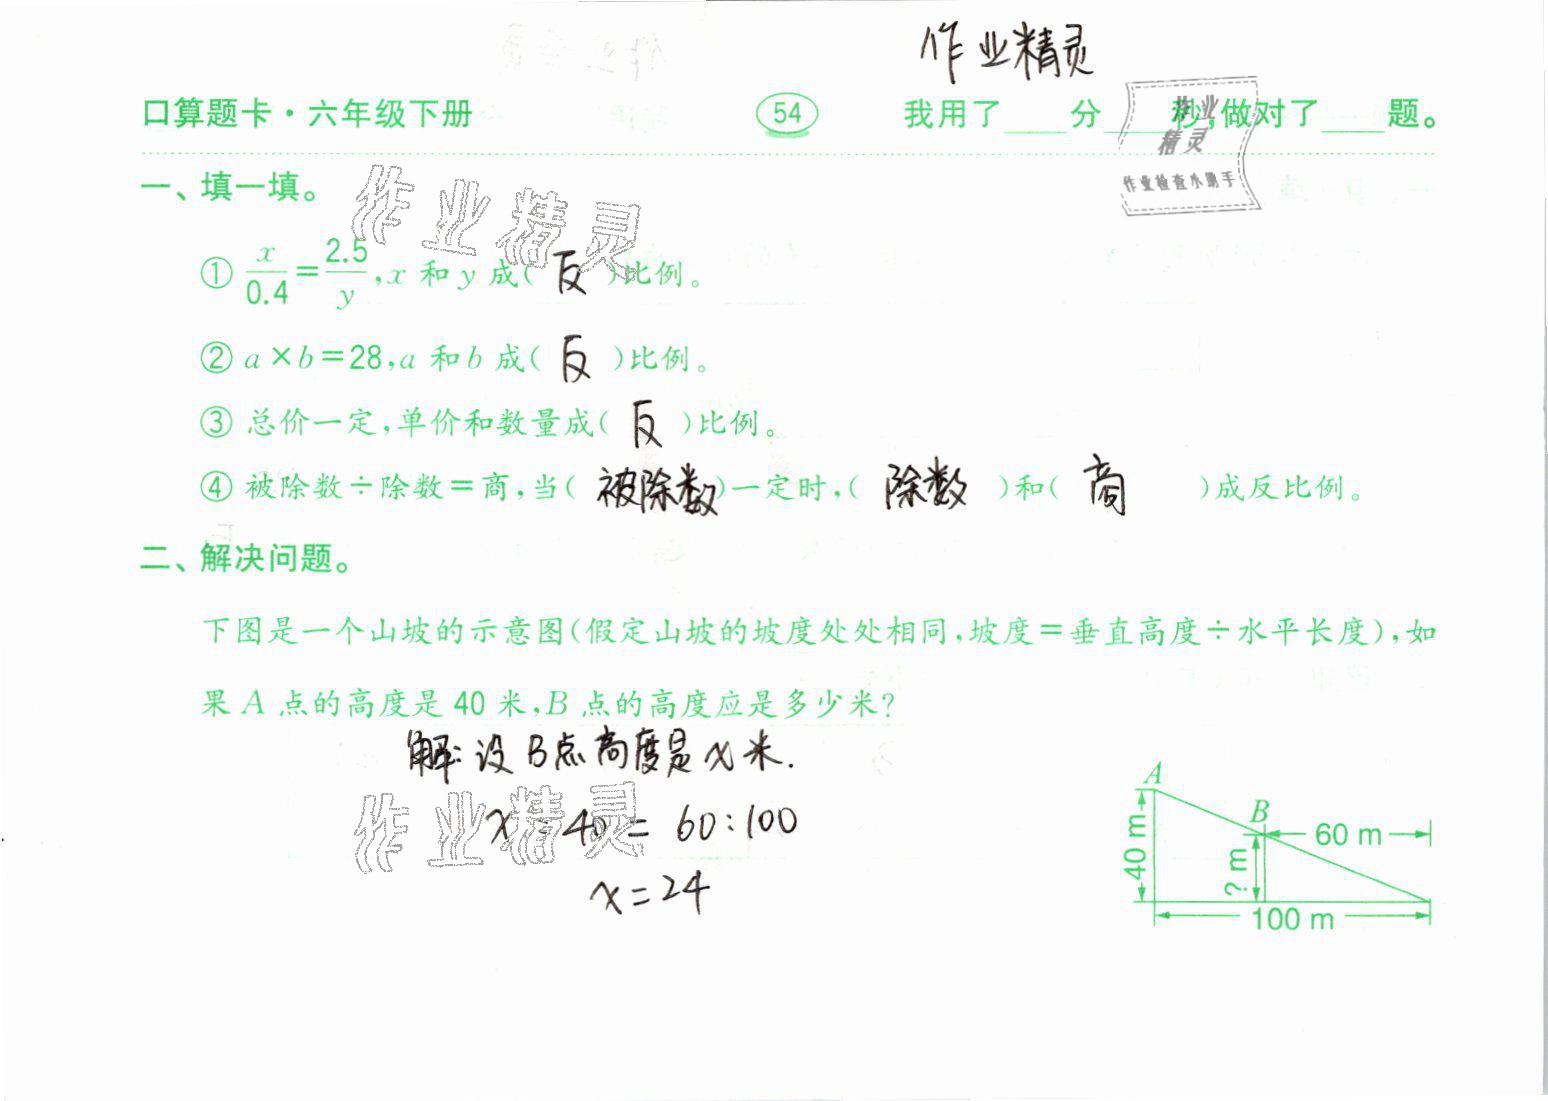 作业精灵
口算题卡·六年级下册 54 我用了____分____秒,做对了____题。
作业
精灵
作业检查小助手
一、填一填。
作业精灵
① x/0.4=2.5/y,x 和 y 成( 反 )比例。
② a×b=28,a 和 b 成( 反 )比例。
③ 总价一定,单价和数量成( 反 )比例。
④ 被除数÷除数=商,当( 被除数 )一定时,( 除数 )和( 商 )成反比例。
二、解决问题。
下图是一个山坡的示意图(假定山坡的坡度处处相同,坡度=垂直高度÷水平长度),如
果 A 点的高度是 40 米,B 点的高度应是多少米?
解:设B点高度是x米.
作业精灵
x:40=60:100
x=24
A
B
60 m
40 m
? m
100 m